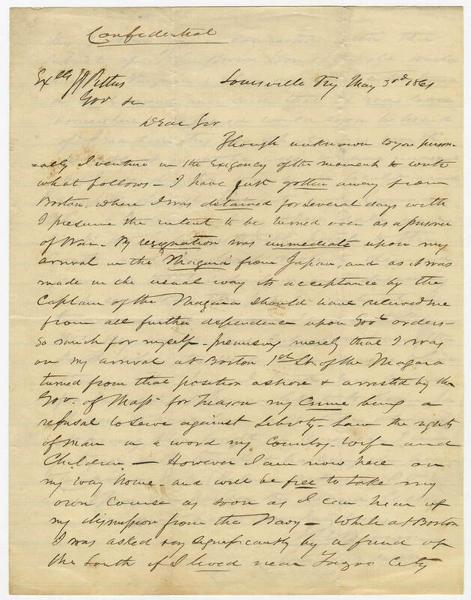 Confidential
Exlly JJ Pettus Louisville Ky May 3rd 1861
Gov &c
Dear Sir
Though unknown to you person-
ally I venture in the Exigency of the moment to write
what follows - I have just gotten away from
Boston, where I was detained for several days with
I presume the intent to be turned over as a prisoner
of War - My resignation was immediate upon my
arrival in the Niagara from Japan, and as it was
made in the usual way its acceptance by the
Captain of the Niagara should have relieved me
from all further dependence upon Govt orders -
So much for myself - premising merely that I was
on my arrival at Boston 1st Lt. of the Niagara
turned from that position ashore & arrested by the
Gov. of Mass for Treason my Crime being a
refusal to Serve against Liberty - Law the rights
of man in a word my Country - Wife and
Children, - However I am now here on
my way home - and will be free to take my
own course as soon as I can hear of
my dismission from the Navy - While at Boston
I was asked very significantly by a friend of
the South if I lived near Yazoo City